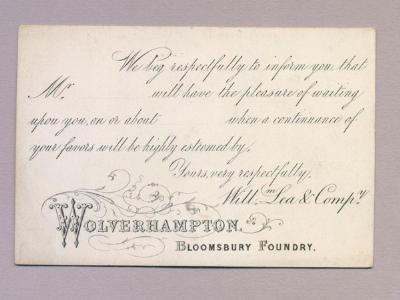 We beg respectfully to inform you that
Mr. will have the pleasure of waiting
upon you, on or about when a continuance of
your favors will be highly esteemed by,
Yours, very respectfully,
Willm. Lea & Compy.
WOLVERHAMPTON.
BLOOMSBURY FOUNDRY.